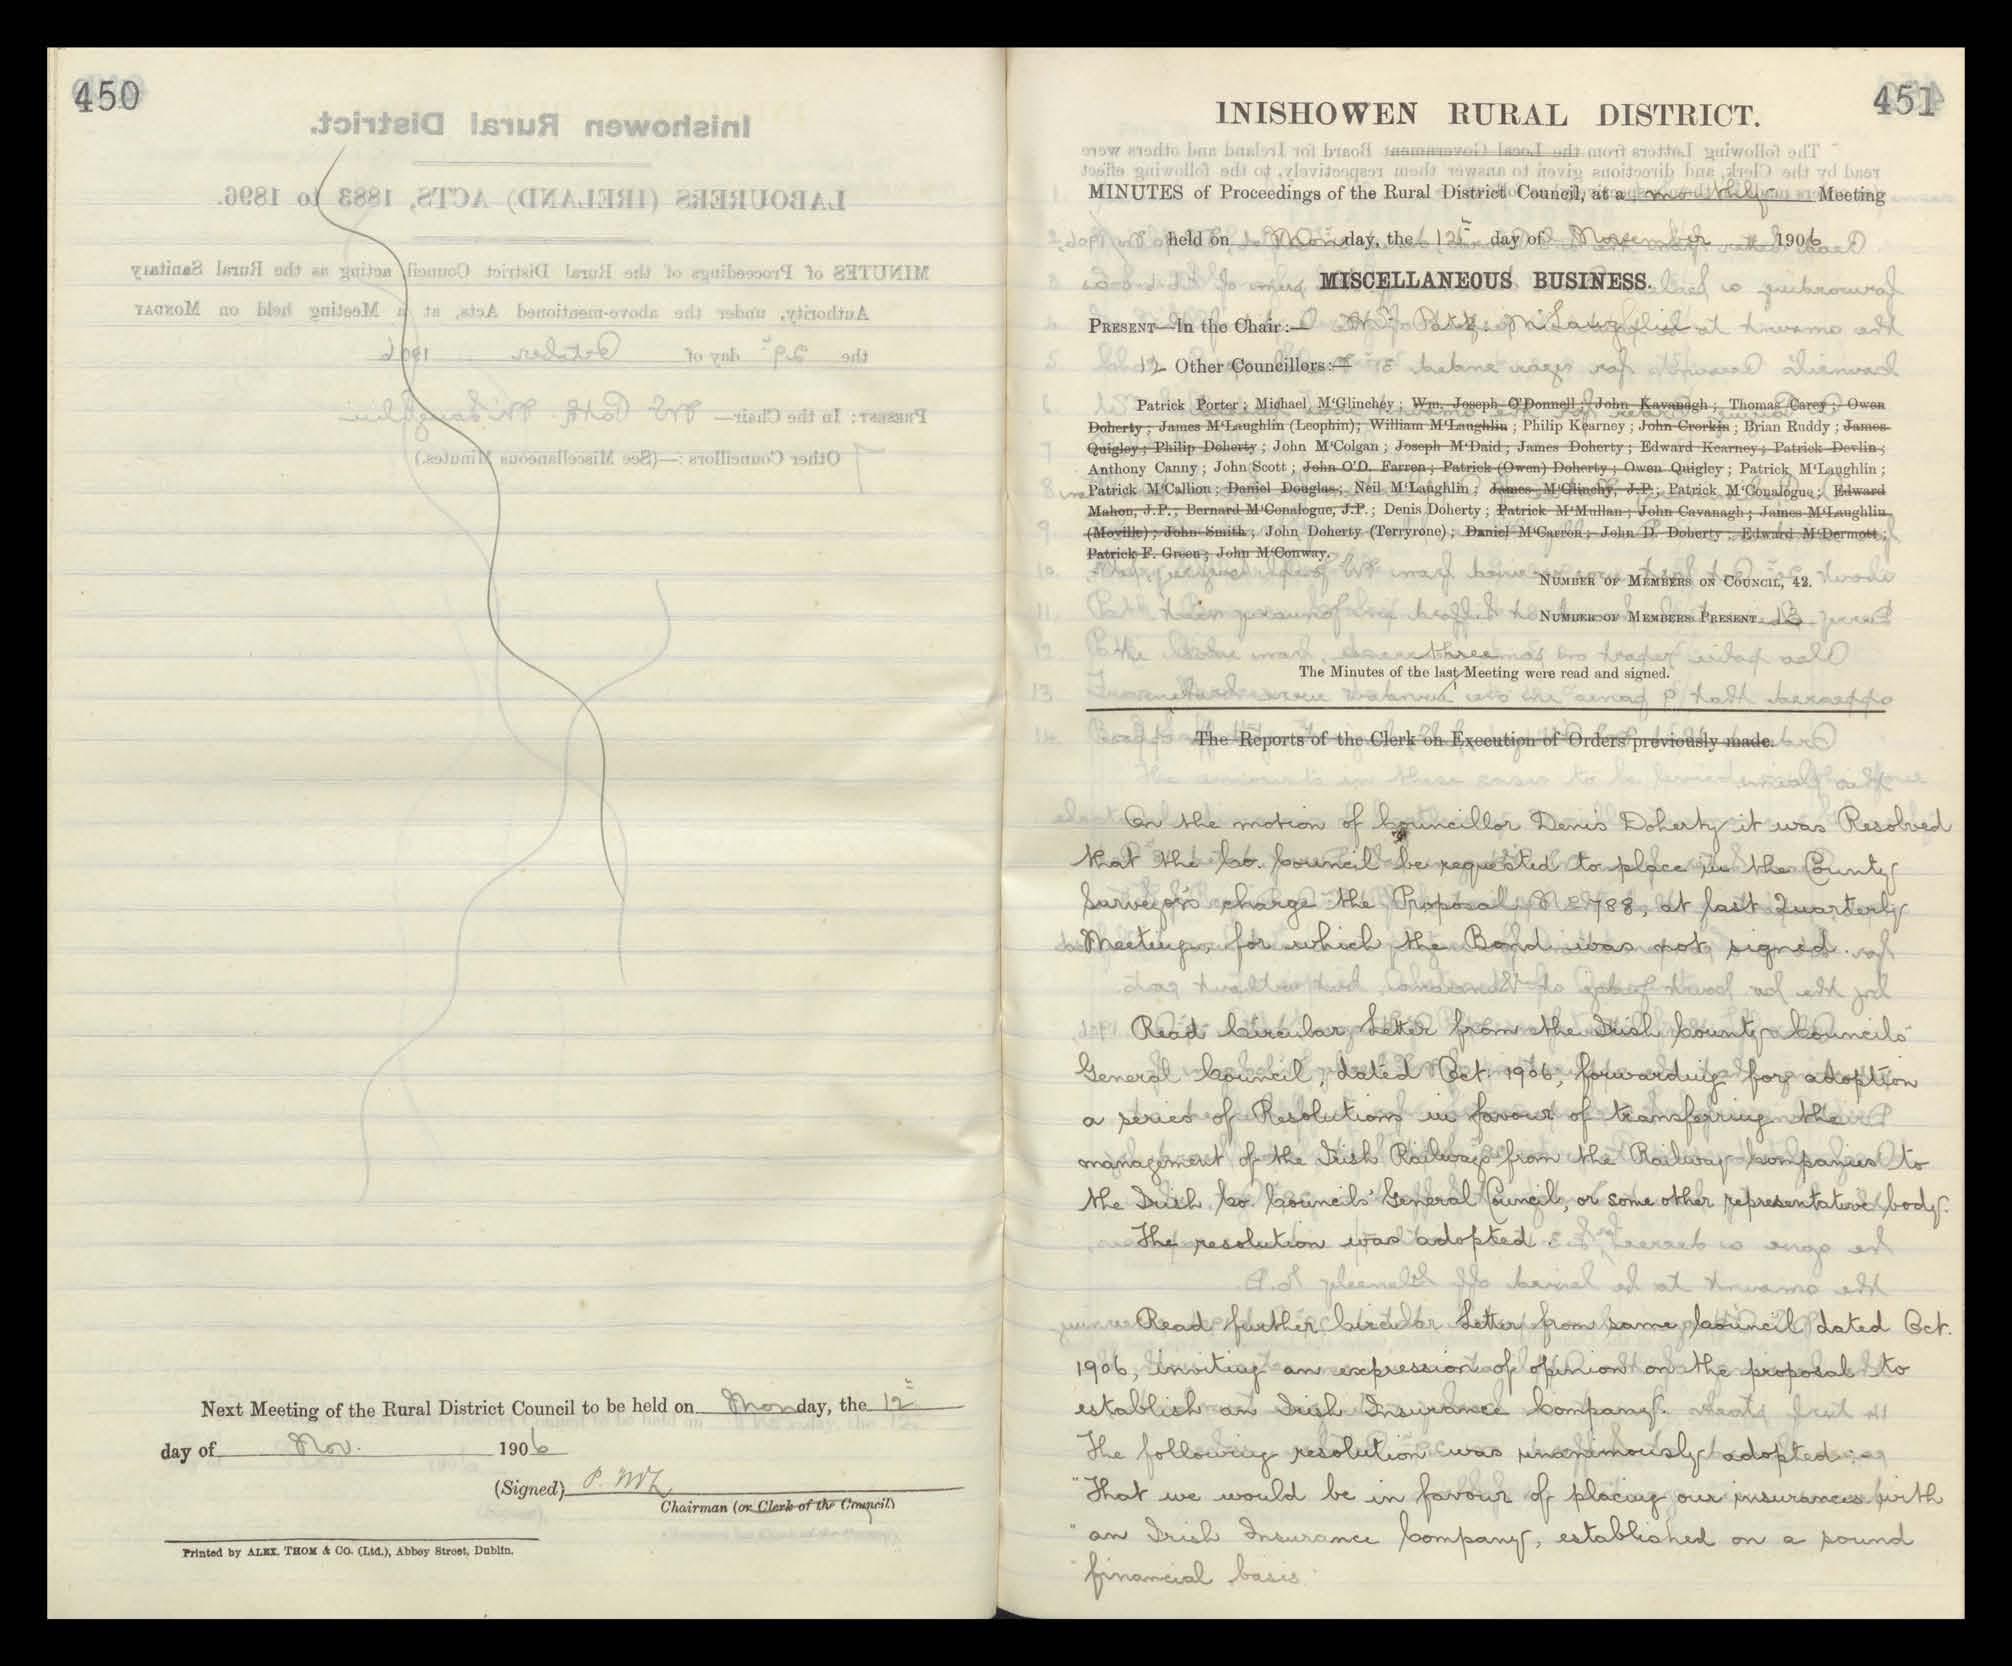 450
Next Meeting of the Rural District Council to be held on Monday, the 12th
day of Nov. 1906
(Signed) P. McL
Chairman (or Clerk of the Council)
Printed by ALEX. THOM & CO. (Ltd.), Abbey Street, Dublin.
451
INISHOWEN RURAL DISTRICT.
MINUTES of Proceedings of the Rural District Council, at a monthly Meeting
held on Monday, the 12th day of November 1906
MISCELLANEOUS BUSINESS.
PRESENT—In the Chair:— Mr. Patk. McLaughlin
12 Other Councillors:—
Patrick Porter; Michael M'Glinchey; Wm. Joseph O'Donnell; John Kavanagh; Thomas Carey; Owen
Doherty; James M'Laughlin (Leophin); William M'Laughlin; Philip Kearney; John Crorkin; Brian Ruddy; James
Quigley; Philip Doherty; John M'Colgan; Joseph M'Daid; James Doherty; Edward Kearney; Patrick Devlin;
Anthony Canny; John Scott; John O'D. Farren; Patrick (Owen) Doherty; Owen Quigley; Patrick M'Laughlin;
Patrick M'Callion; Daniel Douglas; Neil M'Laughlin; James M'Glinchy, J.P.; Patrick M'Conalogue; Edward
Mahon, J.P.; Bernard M'Conalogue, J.P.; Denis Doherty; Patrick M'Mullan; John Cavanagh; James M'Laughlin
(Moville); John Smith; John Doherty (Terryrone); Daniel M'Carron; John D. Doherty; Edward M'Dermott;
Patrick F. Green; John M'Conway.
NUMBER OF MEMBERS ON COUNCIL, 42.
NUMBER OF MEMBERS PRESENT 13
three
The Minutes of the last Meeting were read and signed.
The Reports of the Clerk on Execution of Orders previously made.
On the motion of Councillor Denis Doherty it was Resolved
that the Co. Council be requested to place in the County
Surveyor's charge the Proposal, No. 788, at last Quarterly
Meeting, for which the Bond was not signed.
Read Circular Letter from the Irish County Councils'
General Council, dated Oct. 1906, forwarding for adoption
a series of Resolutions in favour of transferring the
management of the Irish Railways from the Railway Companies to
the Irish Co. Councils' General Council, or some other representative body.
The resolution was adopted.
Read further Circular Letter from same Council dated Oct.
1906, inviting an expression of opinion on the proposal to
establish an Irish Insurance Company.
The following resolution was unanimously adopted:
"That we would be in favour of placing our insurances with
"an Irish Insurance Company, established on a sound
"financial basis